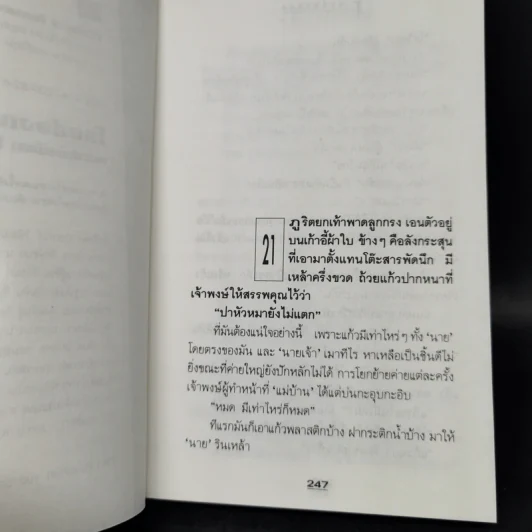 21
ภูริตยกเท้าพาดลูกกรง เอนตัวอยู่
บนเก้าอี้ผ้าใบ ข้างๆ คือลังกระสุน
ที่เอามาตั้งแทนโต๊ะสารพัดนึก มี
เหล้าครึ่งขวด ถ้วยแก้วปากหนาที่
เจ้าพงษ์ให้สรรพคุณไว้ว่า
“ปาหัวหมายังไม่แตก”
ที่มันต้องแน่ใจอย่างนี้ เพราะแก้วมีเท่าไหร่ๆ ทั้ง ‘นาย’
โดยตรงของมัน และ ‘นายเจ้า’ เมาทีไร หาเหลือเป็นชิ้นดีไม่
ยิ่งขณะที่ค่ายใหญ่ยังปักหลักไม่ได้ การโยกย้ายค่ายแต่ละครั้ง
เจ้าพงษ์ผู้ทำหน้าที่ ‘แม่บ้าน’ ได้แต่บ่นกะอุบกะอิบ
“หมด มีเท่าไหร่ก็หมด”
ทีแรกมันก็เอาแก้วพลาสติกบ้าง ฝากระติกน้ำบ้าง มาให้
‘นาย’ รินเหล้า
247